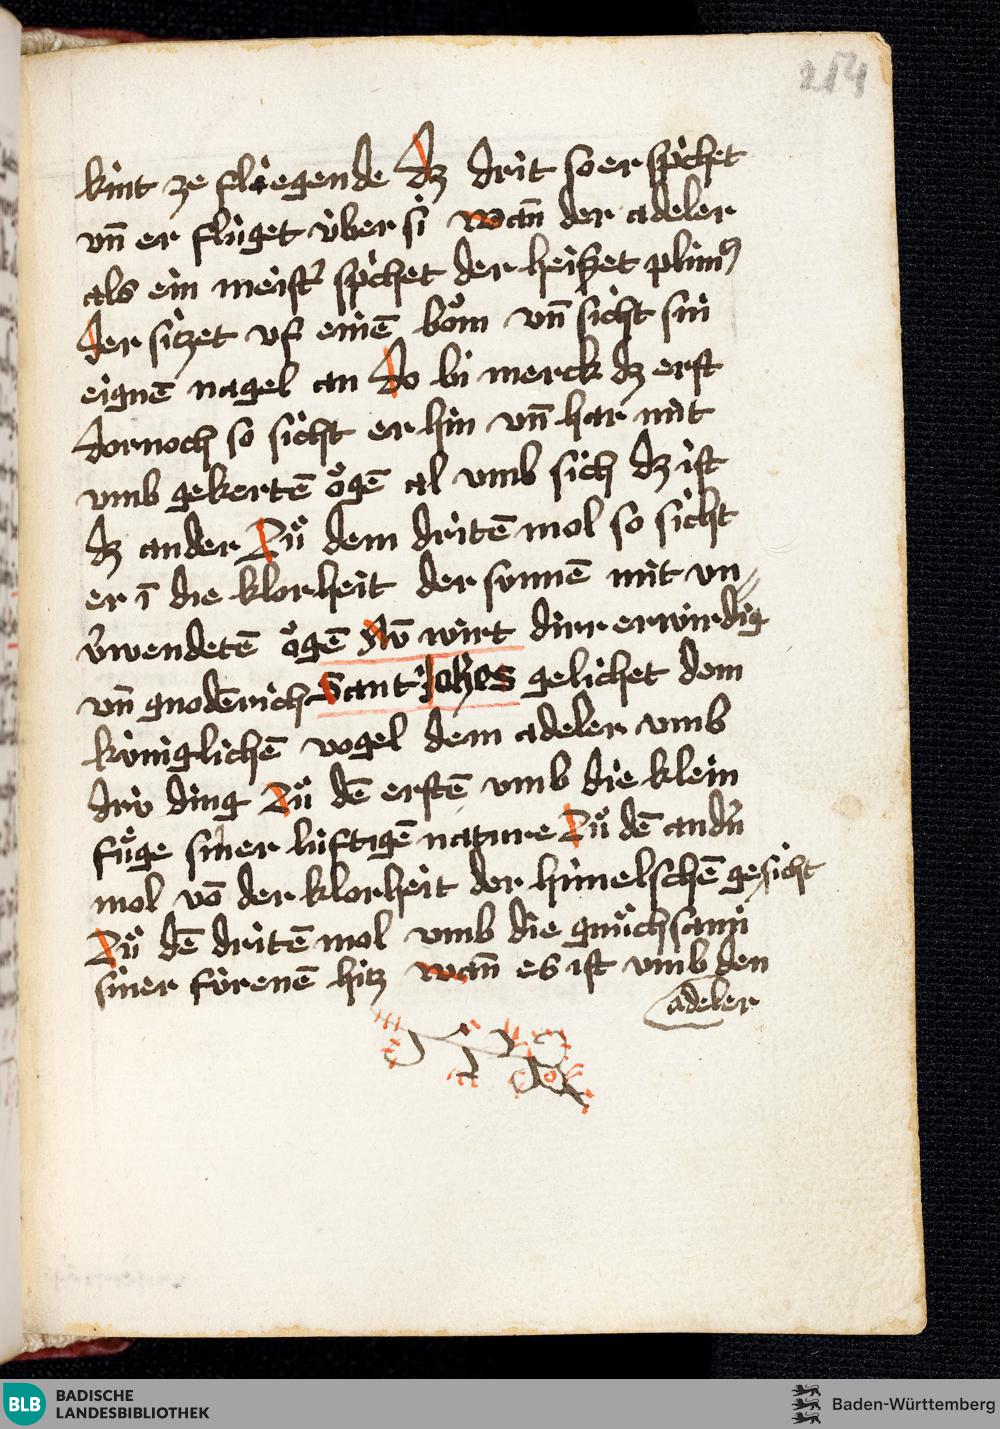 254
kint ze fliegende dz drit so er sp̍chet
vn̄ er flúget v́ber si wan̄ der adeler
als ein meist̍ sp̍chet der heisset plini9
der sitzet vf einē bǒm vn̄ sicht sin
eignē nagel an Do bi merck dz erst
dornoch so sicht er hin vn̄ har mit
vmb gekertē ǒgē al vmb sich dz ist
dz ander Zů dem dritē mol so sicht
er ī die klorheit der sunnē mit vn
v̍wendetē ǒgē Nv̄ wirt dirr erwirdig
vn̄ gnodērich Sant Joh̄es gelichet dem
kv́niglichē vogel dem adeler vmb
driv ding Zů dē erstē vmb die klein
fůge siner lúftigē nature Zů dē and̍n
mol vō der klorheit der himelschē gesicht
Zů dē dritē mol vmb die gnůchsami
siner fv́renē hitz wan̄ es ist vmb den
adeler
BLB BADISCHE
LANDESBIBLIOTHEK
Baden-Württemberg